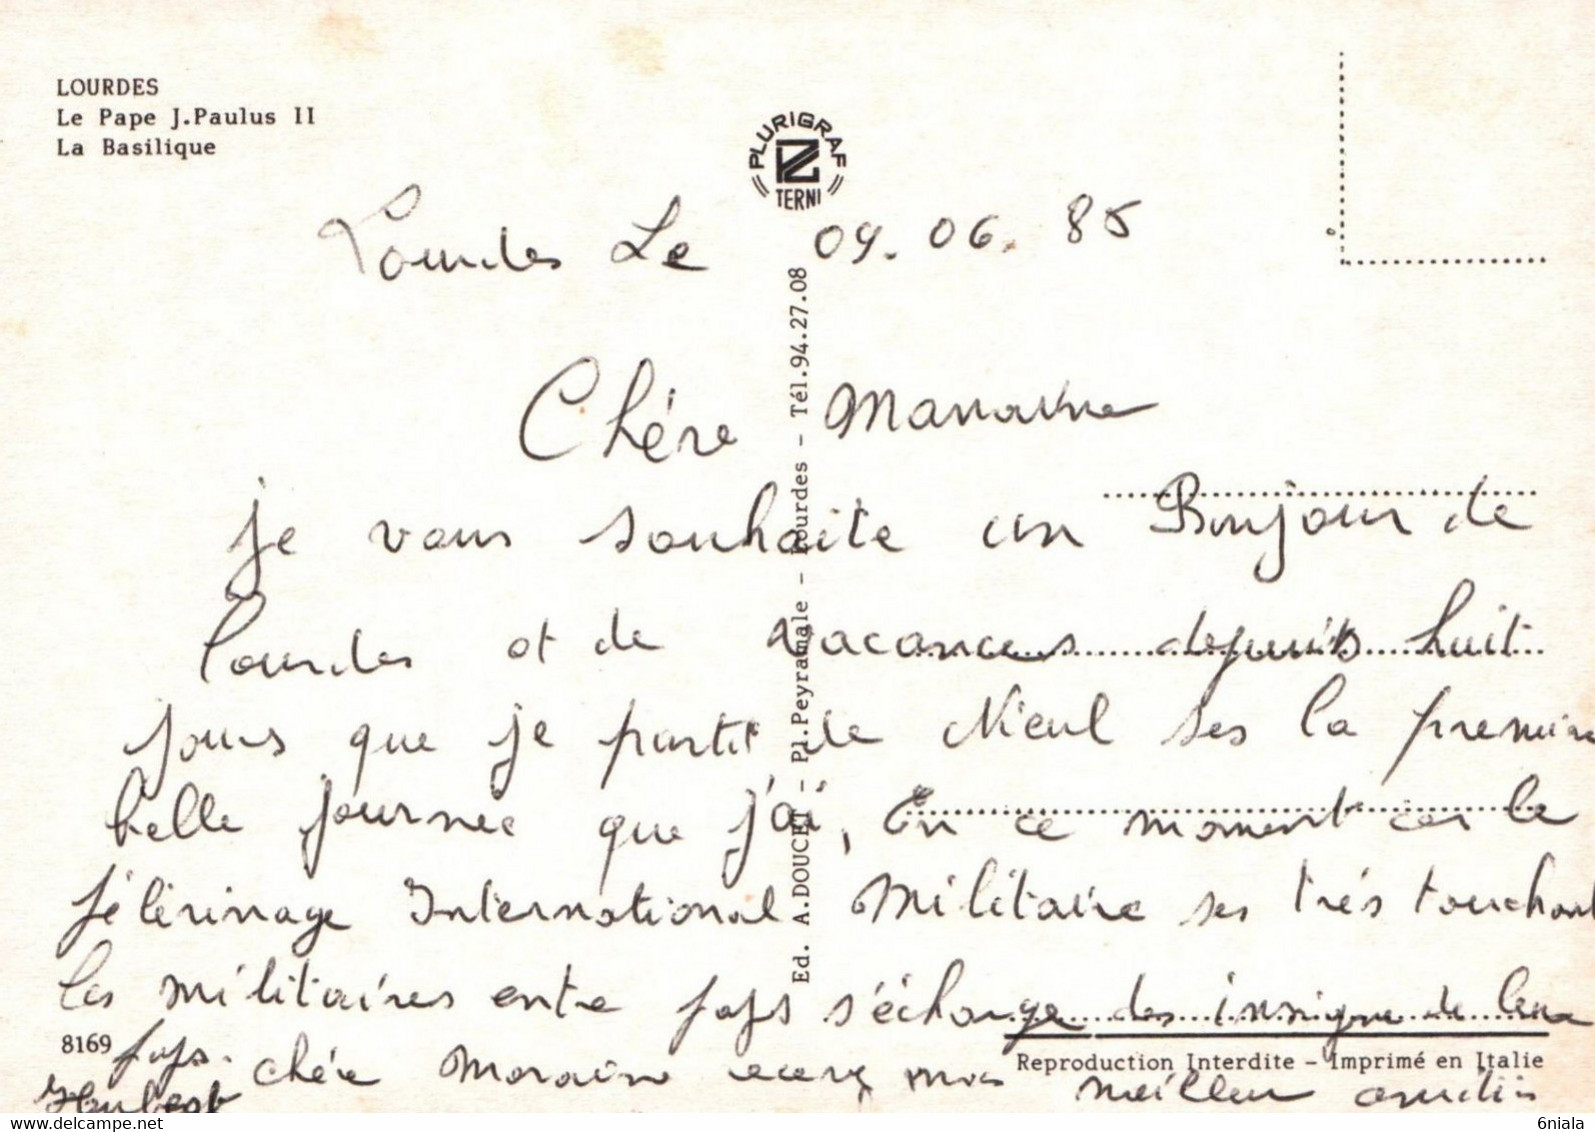 LOURDES
Le Pape J.Paulus II
La Basilique
PLURIGRAF
TERNI
Lourdes Le 09.06.85
Chére Marraine
je vous souhaite un Bonjour de
lourdes et de vacances depuis huit
jours que je partit de Nieul ses la premiere
belle journee que j'ai, En ce moment ces le
pélérinage International Militaire ses trés touchant
les militaires entre pays s'échange des insigne de leur
pays. chére Maraine recevez mes meilleur
Hubert
8169
Ed. A.DOUCET - Pl.Peyramale - Lourdes - Tél.94.27.08
Reproduction Interdite - Imprimé en Italie
delcampe.net
6niala